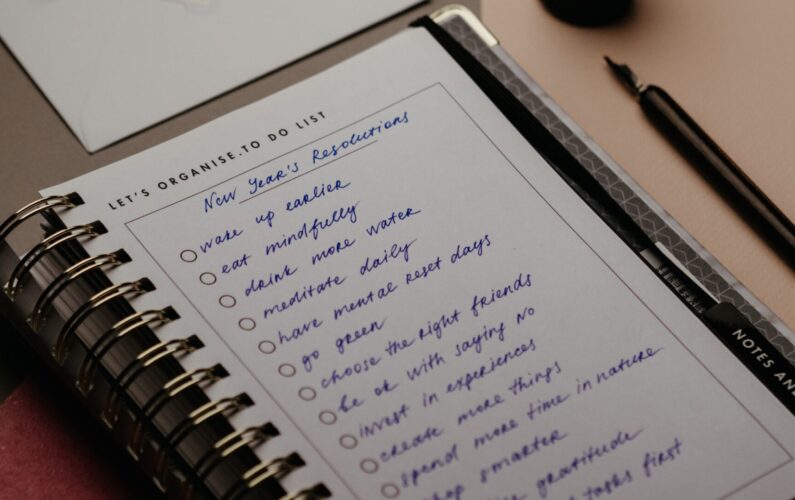 LET'S ORGANISE.TO DO LIST
New Year's Resolutions
wake up earlier
eat mindfully
drink more water
meditate daily
have mental reset days
go green
choose the right friends
be ok with saying No
invest in experiences
create more things
spend more time in nature
smarter
gratitude
tasks first
NOTES AND